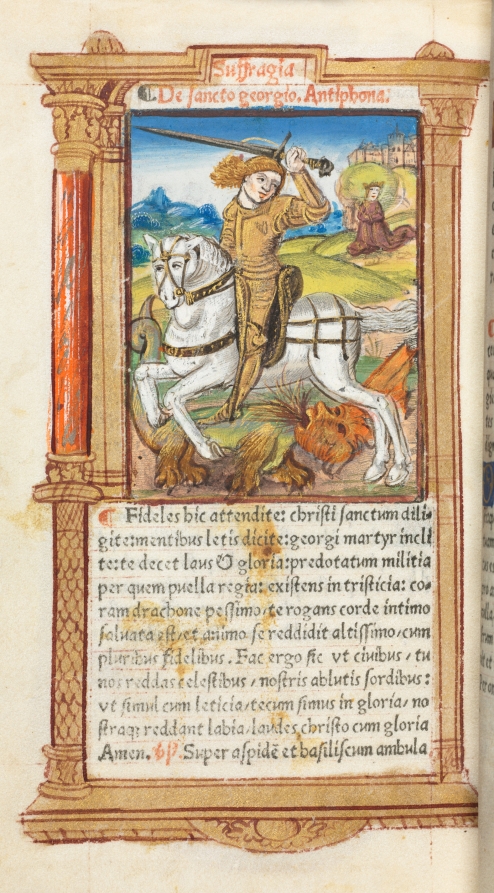 Suffragia
De sancto georgio. Antiphona:
Fideles hic attendite: christi sanctum dili-
gite: mentibus letis dicite: georgi martyr incli
te: te decet laus & gloria: predotatum militia
per quem puella regia: existens in tristicia: co-
ram drachone pessimo/ te rogans corde intimo
saluata est/ et animo se reddidit altissimo/ cum
pluribus fidelibus. Fac ergo sic vt ciuibus/ tu
nos reddas celestibus/ nostris ablutis sordibus:
vt simul cum leticia/ tecum simus in gloria/ no
straq; reddant labia/ laudes christo cum gloria
Amen. Super aspidē et basiliscum ambula